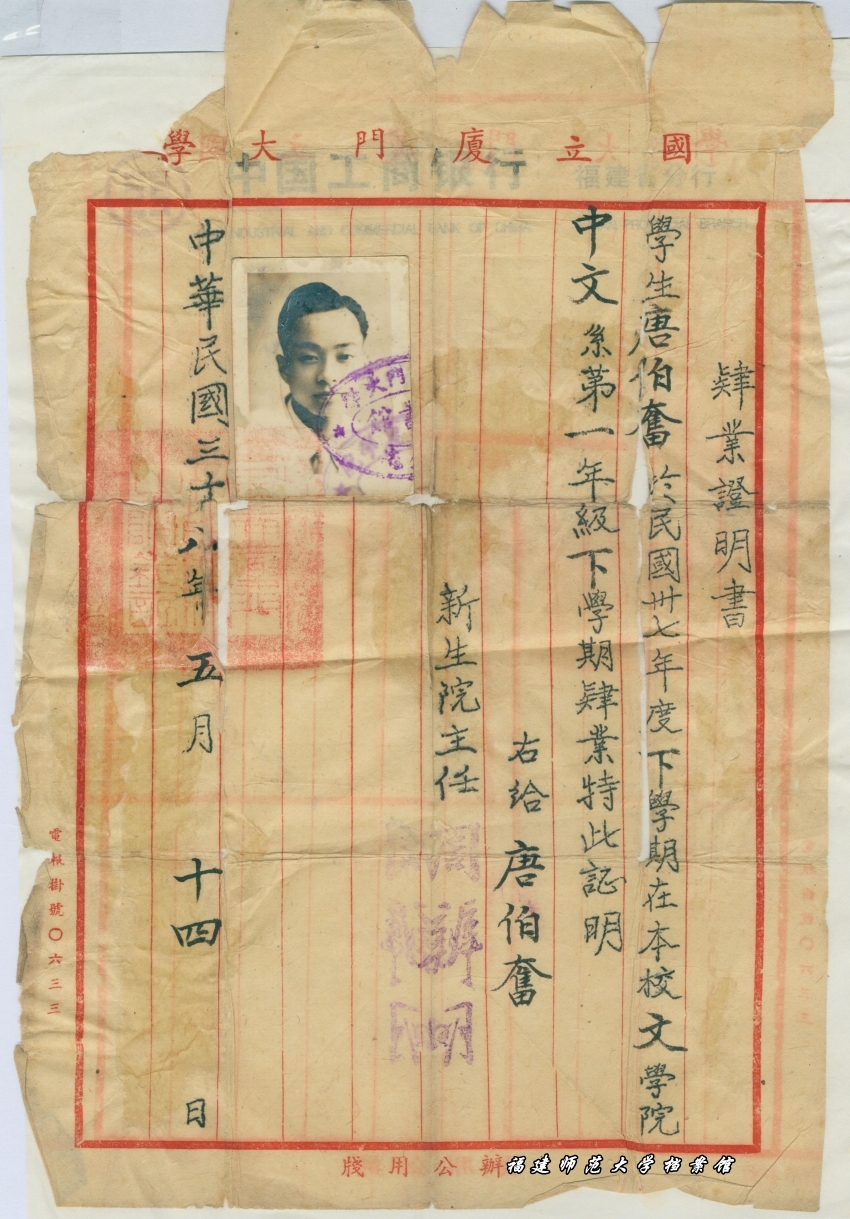 國立廈門大學
肄業證明書
學生唐伯奮於民國卅七年度下學期在本校文學院
中文系第一年級下學期肄業特此証明
右給唐伯奮
新生院主任
周辨明
中華民國三十八年五月十四日
電報掛號〇六三三
辦公用牋
中国工商银行 福建省分行
INDUSTRIAL AND COMMERCIAL BANK OF CHINA
福建师范大学档案馆